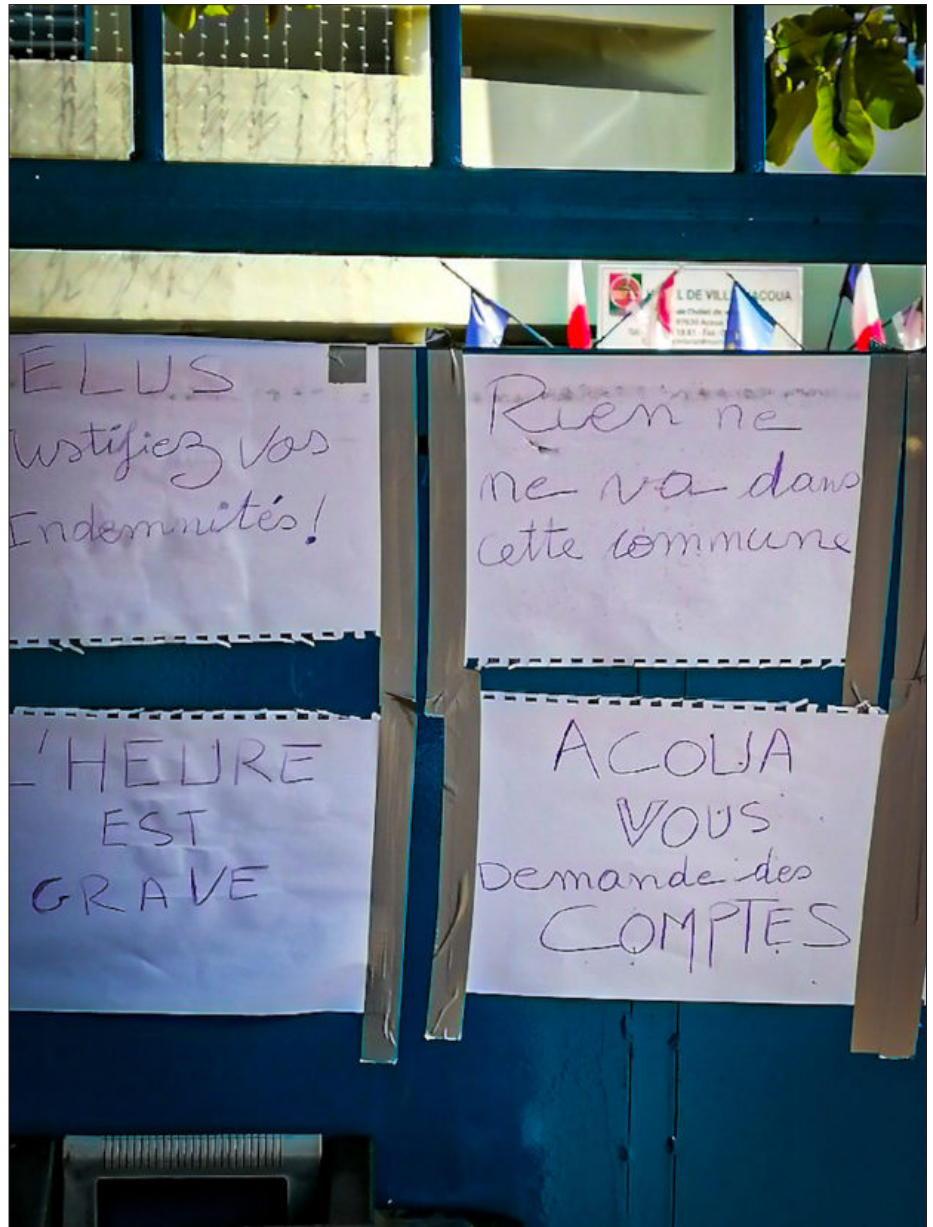 L DE VILL ACOUA
97630 Acoua
ELUS
ustifiez vos
Indemnités!
Rien ne
ne va dans
cette commune
L'HEURE
EST
GRAVE
ACOUA
VOUS
Demande des
COMPTES